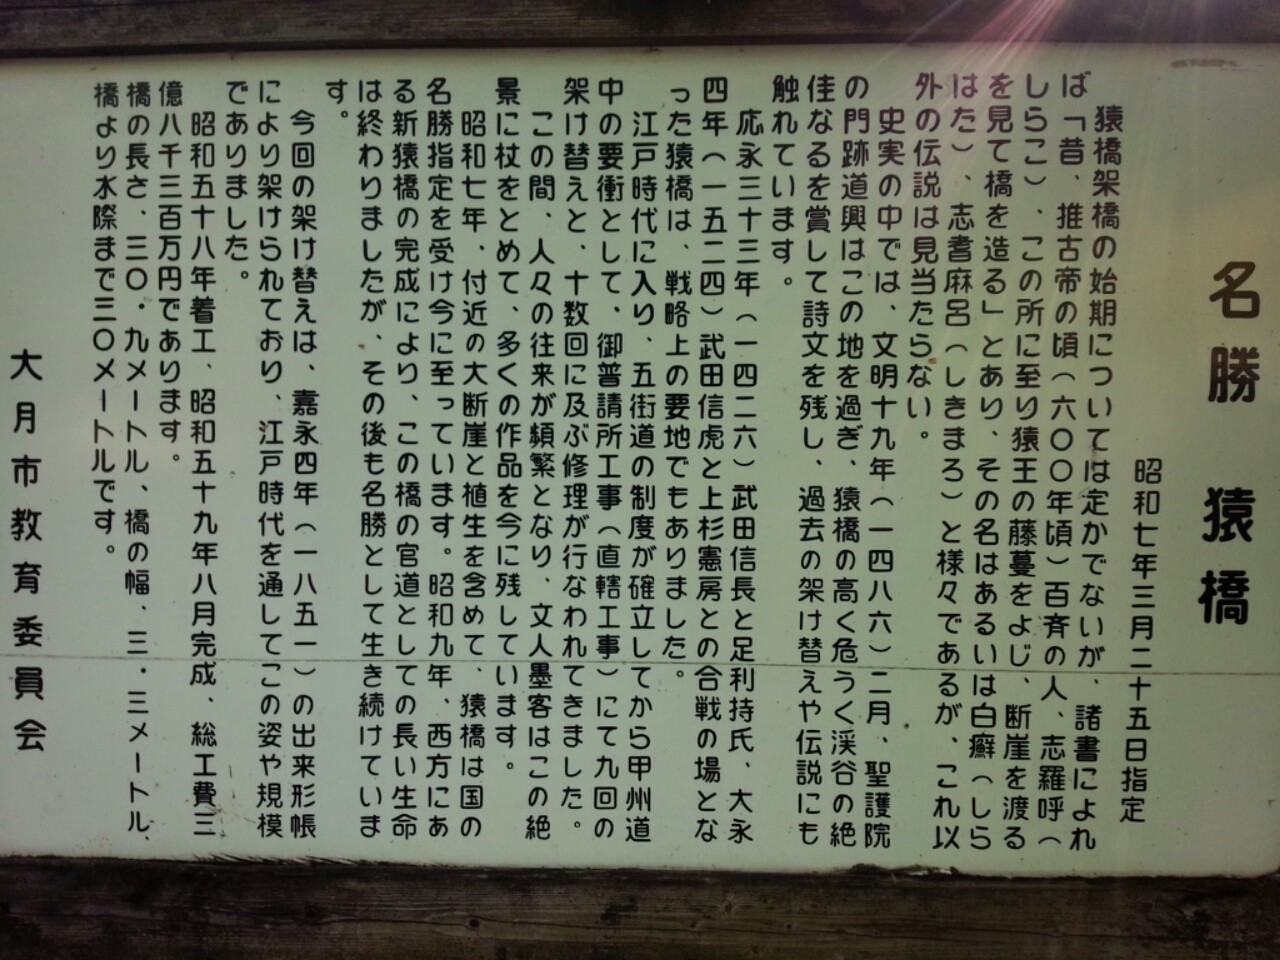 名勝 猿橋
昭和七年三月二十五日指定
猿橋架橋の始期については定かでないが、諸書によれ
ば「昔、推古帝の頃(六〇〇年頃)百斉の人、志羅呼(
しらこ)、この所に至り猿王の藤蔓をよじ、断崖を渡る
を見て橋を造る」とあり、その名はあるいは白癬(しら
はた)、志耆麻呂(しきまろ)と様々であるが、これ以
外の伝説は見当たらない。
史実の中では、文明十九年(一四八六)二月、聖護院
の門跡道興はこの地を過ぎ、猿橋の高く危うく渓谷の絶
佳なるを賞して詩文を残し、過去の架け替えや伝説にも
触れています。
応永三十三年(一四二六)武田信長と足利持氏、大永
四年(一五二四)武田信虎と上杉憲房との合戦の場とな
った猿橋は、戦略上の要地でもありました。
江戸時代に入り、五街道の制度が確立してから甲州道
中の要衝として、御普請所工事(直轄工事)にて九回の
架け替えと、十数回に及ぶ修理が行なわれてきました。
この間、人々の往来が頻繁となり、文人墨客はこの絶
景に杖をとめて、多くの作品を今に残しています。
昭和七年、付近の大断崖と植生を含めて、猿橋は国の
名勝指定を受け今に至っています。昭和九年、西方にあ
る新猿橋の完成により、この橋の官道としての長い生命
は終わりましたが、その後も名勝として生き続けていま
す。
今回の架け替えは、嘉永四年(一八五一)の出来形帳
により架けられており、江戸時代を通してこの姿や規模
でありました。
昭和五十八年着工、昭和五十九年八月完成、総工費三
億八千三百万円であります。
橋の長さ、三〇・九メートル、橋の幅、三・三メートル、
橋より水際まで三〇メートルです。
大月市教育委員会